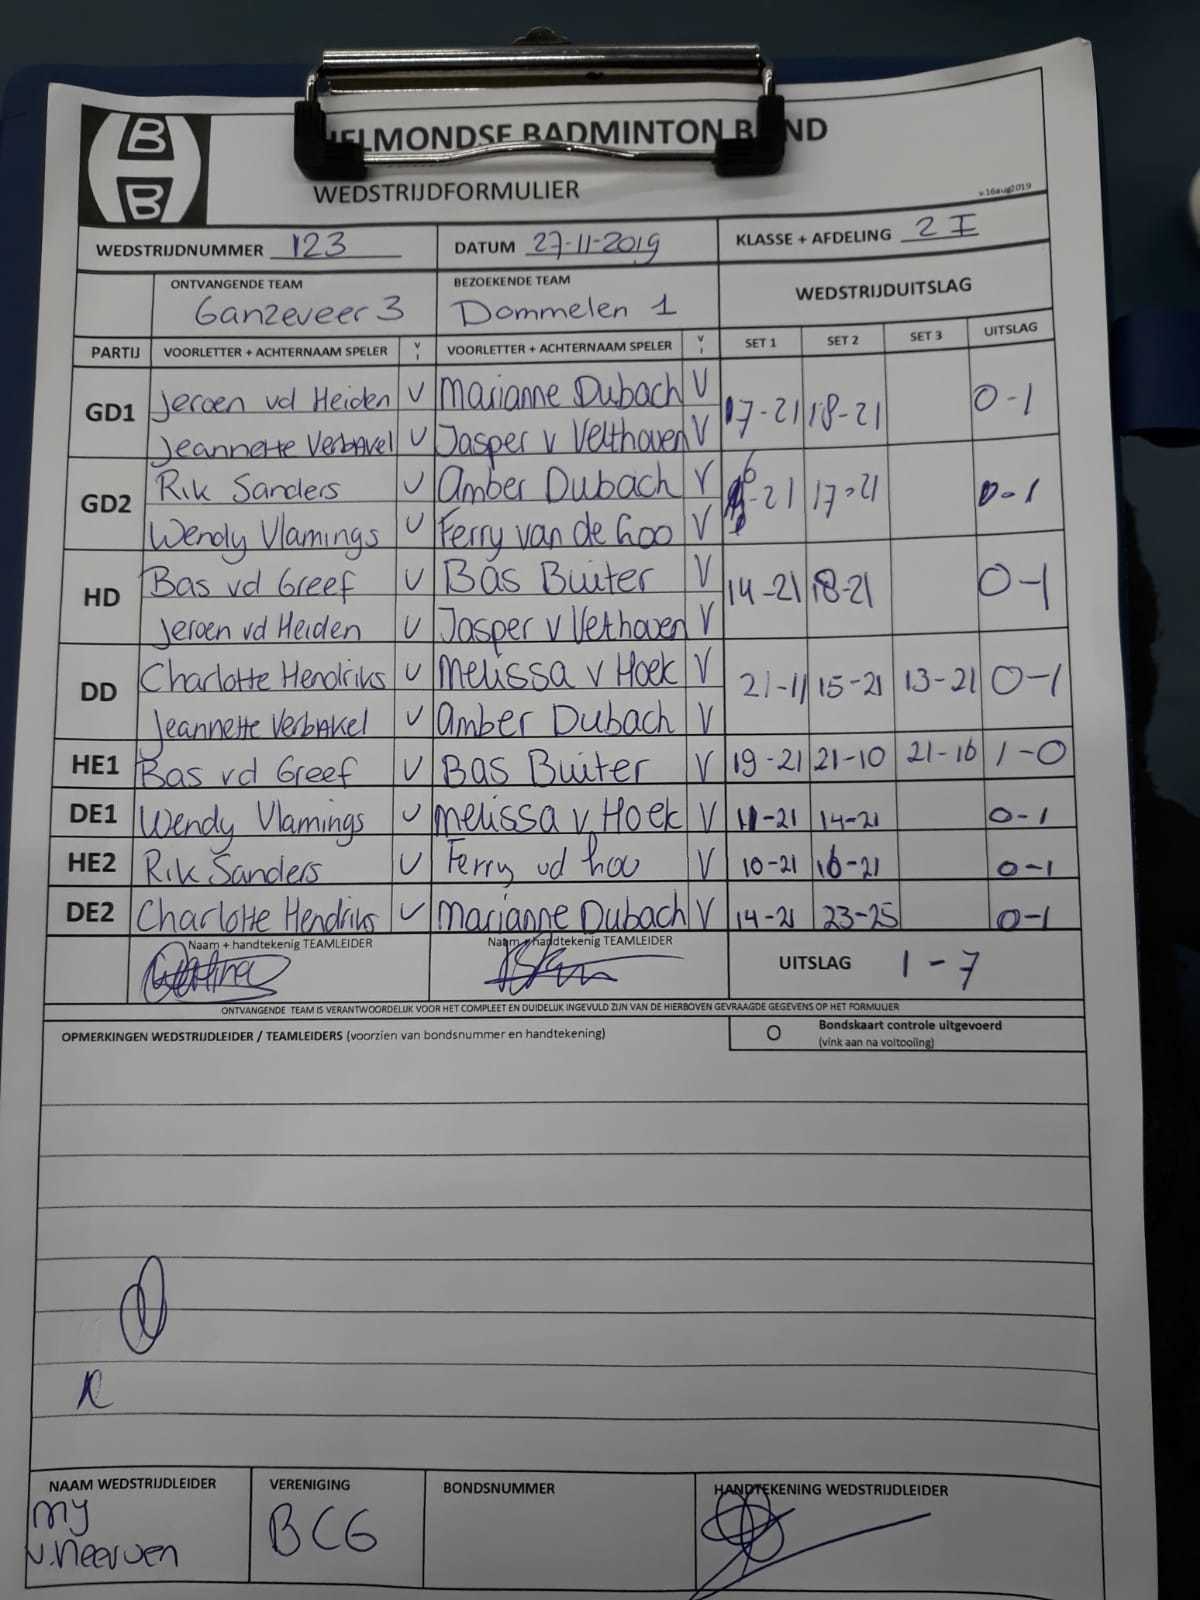 HELMONDSE BADMINTON BOND
WEDSTRIJDFORMULIER
v.16aug2019
WEDSTRIJDNUMMER 123 DATUM 27-11-2019 KLASSE + AFDELING 2 I
ONTVANGENDE TEAM BEZOEKENDE TEAM WEDSTRIJDUITSLAG
Ganzeveer 3 Dommelen 1
PARTIJ VOORLETTER + ACHTERNAAM SPELER V VOORLETTER + ACHTERNAAM SPELER V SET 1 SET 2 SET 3 UITSLAG
GD1 Jeroen vd Heiden V Marianne Dubach V 17-21 18-21 0-1
Jeannette Verbakel V Jasper v Velthoven V
GD2 Rik Sanders V Amber Dubach V -21 17-21 0-1
Wendy Vlamings V Ferry van de Goo V
HD Bas vd Greef V Bas Buiter V 14-21 18-21 0-1
Jeroen vd Heiden V Jasper v Velthoven V
DD Charlotte Hendriks V Melissa v Hoek V 21-11 15-21 13-21 0-1
Jeannette Verbakel V Amber Dubach V
HE1 Bas vd Greef V Bas Buiter V 19-21 21-10 21-16 1-0
DE1 Wendy Vlamings V Melissa v Hoek V 11-21 14-21 0-1
HE2 Rik Sanders V Ferry vd V 10-21 16-21 0-1
DE2 Charlotte Hendriks V Marianne Dubach V 14-21 23-25 0-1
Naam + handtekenig TEAMLEIDER Naam + handtekenig TEAMLEIDER UITSLAG 1-7
ONTVANGENDE TEAM IS VERANTWOORDELIJK VOOR HET COMPLEET EN DUIDELIJK INGEVULD ZIJN VAN DE HIERBOVEN GEVRAAGDE GEGEVENS OP HET FORMULIER
OPMERKINGEN WEDSTRIJDLEIDER / TEAMLEIDERS (voorzien van bondsnummer en handtekening) O Bondskaart controle uitgevoerd
(vink aan na voltooiing)
NAAM WEDSTRIJDLEIDER VERENIGING BONDSNUMMER HANDTEKENING WEDSTRIJDLEIDER
my BCG